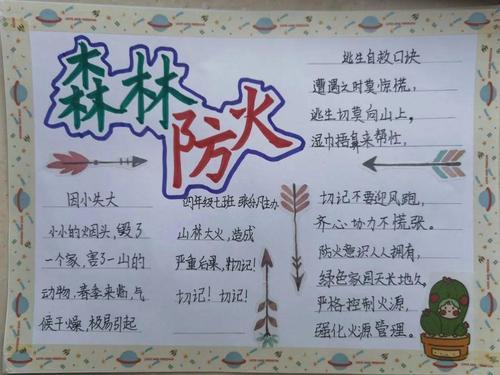 森林
防火
逃生自救口诀
遭遇之时莫惊慌,
逃生切莫向山上,
湿巾捂鼻来帮忙,
切记不要迎风跑,
齐心协力不慌张。
防火意识人人拥有,
绿色家园天长地久。
严格控制火源,
强化火源管理。
因小失大
小小的烟头,毁了
一个家,害了一山的
动物,春季来临,气
候干燥,极易引起
四年级七班
山林大火,造成
严重后果,切记!
切记!切记!